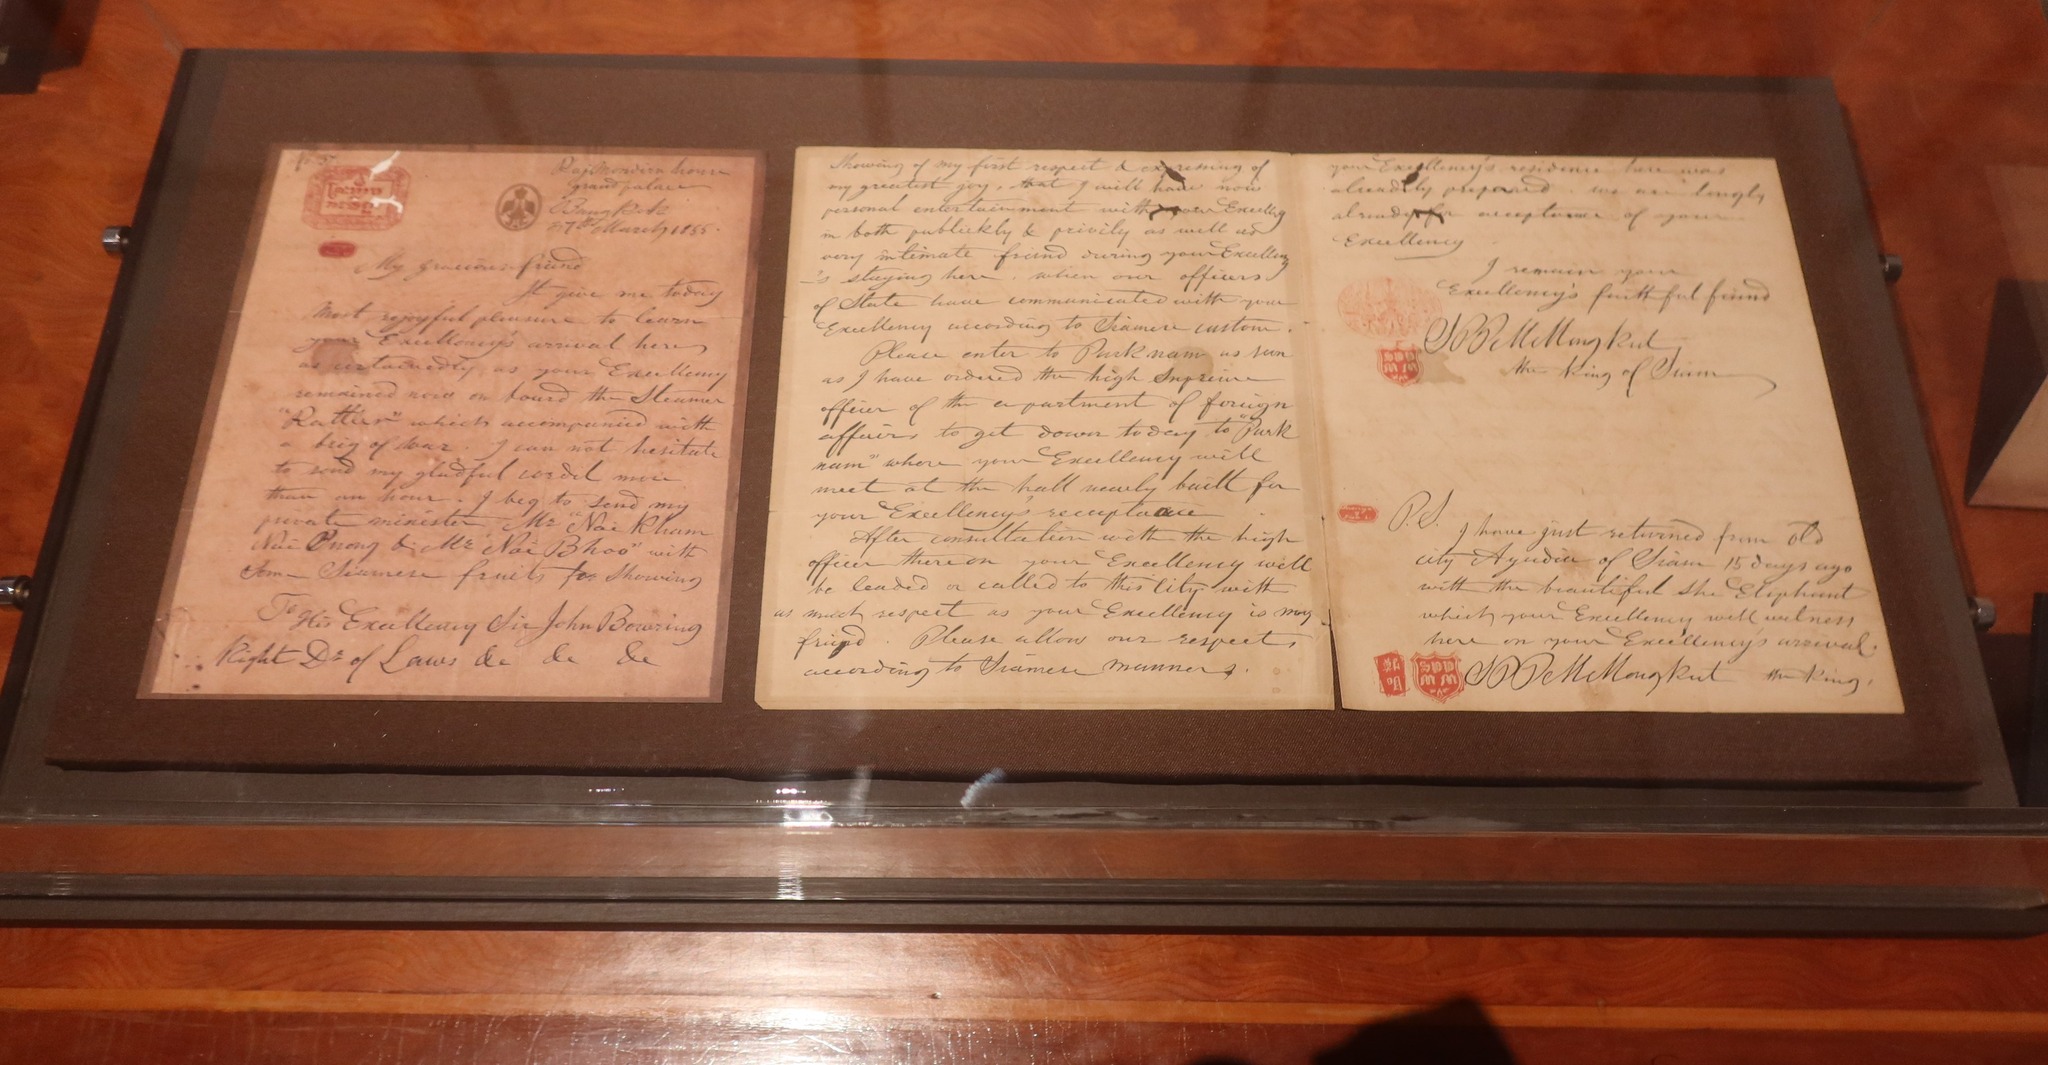 Rajmondirn house
Grand palace
Bangkok
27th March 1855.
My gracious friend
It give me today
most rejoyful pleasure to learn
your Excellency's arrival here
as certainedly as your Excellency
remained now on board the Steamer
"Rattler" which accompanied with
a brig of war. I can not hesitate
to send my gladful wordel more
than an hour. I beg to send my
private minister Mr "Nai Kham
Nai Puong & Mr "Nai Bhoo" with
Some Siamese fruits for showing
To His Excellency Sir John Bowring
Right Dr of Laws &c &c &c
Showing of my first respect & expressing of
my greatest joy, that I will have now
personal entertainment with your Excellency
in both publickly & privily as well as
very intimate friend during your Excellency
's staying here. when our officers
of State have communicated with your
Excellency according to Siamese custom.
Please enter to Paknam as soon
as I have ordered the high Supreme
officer of the department of foreign
affairs to get down today to "Pak
nam" where your Excellency will
meet at the hall newly built for
your Excellency's receptance
After consultation with the high
officer thereon your Excellency will
be leaded or called to this City with
as much respect as your Excellency is my
friend. Please allow our respects
according to Siamese manners.
your Excellency's residence here was
already prepared we are longly
already for acceptance of your
Excellency
I remain your
Excellency's faithful friend
SPPM Mongkut
the King of Siam
P.S. I have just returned from old
city Ayudia of Siam 15 days ago
with the beautiful she Elephant
which your Excellency will witness
here on your Excellency's arrival.
SPPM Mongkut the King.